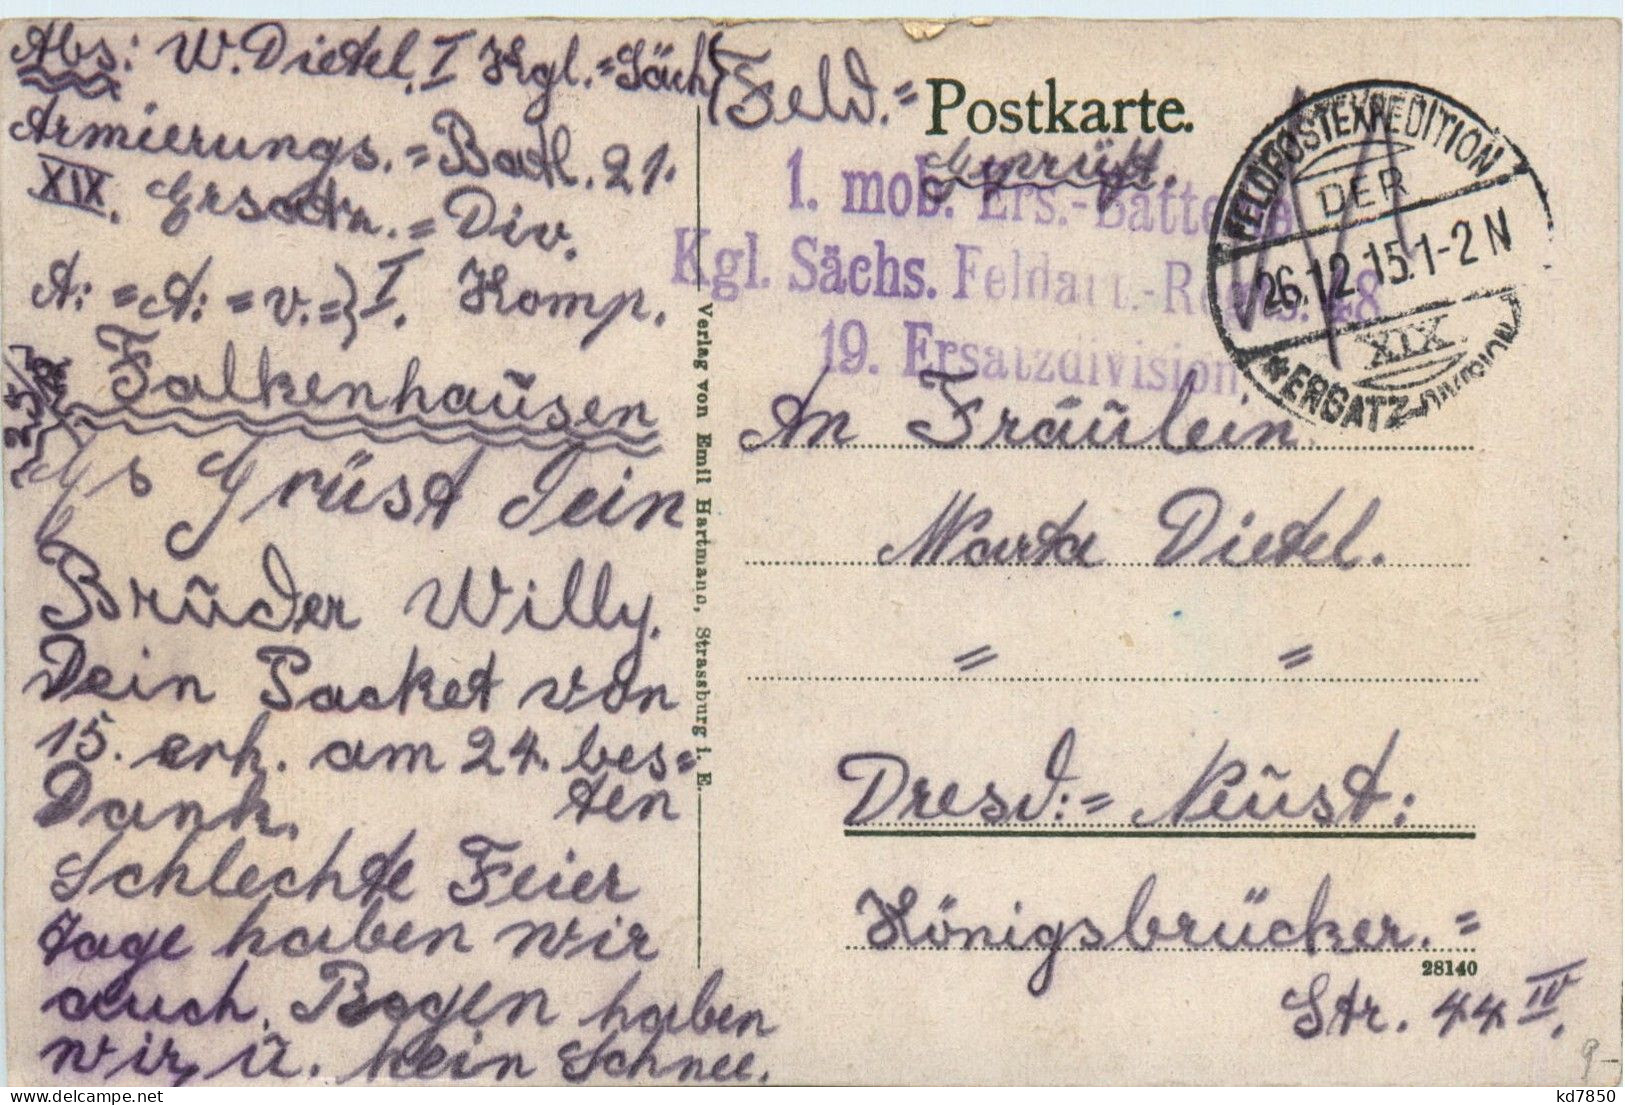 Abs: W. Dietel, I Kgl.=Säch
Armierungs.=Batl. 21.
XIX. Ersatz.=Div.
A:=A:=v.=} I. Komp.
Falkenhaūsen
Es Grüst Dein
Brūder Willy.
Dein Packet von
15. erh. am 24. bes=
Dank. ten
Schlechte Feier
tage haben wir
auch, Regen haben
wir, ū. kein Schnee.
Verlag von Emil Hartmann, Strassburg i. E.
Feld.= Postkarte.
Geprüft.
1. mob. Ers.-Batterie
Kgl. Sächs. Feldart.-Regts. 48
19. Ersatzdivision
FELDPOSTEXPEDITION
DER
26.12.15.1-2N
XIX
* ERSATZ-DIVISION
An Fräūlein
Marta Dietel.
= =
Dresd:= Neūst:
Königsbrücker.=
28140
Str. 44 IV.
9-
kd7850